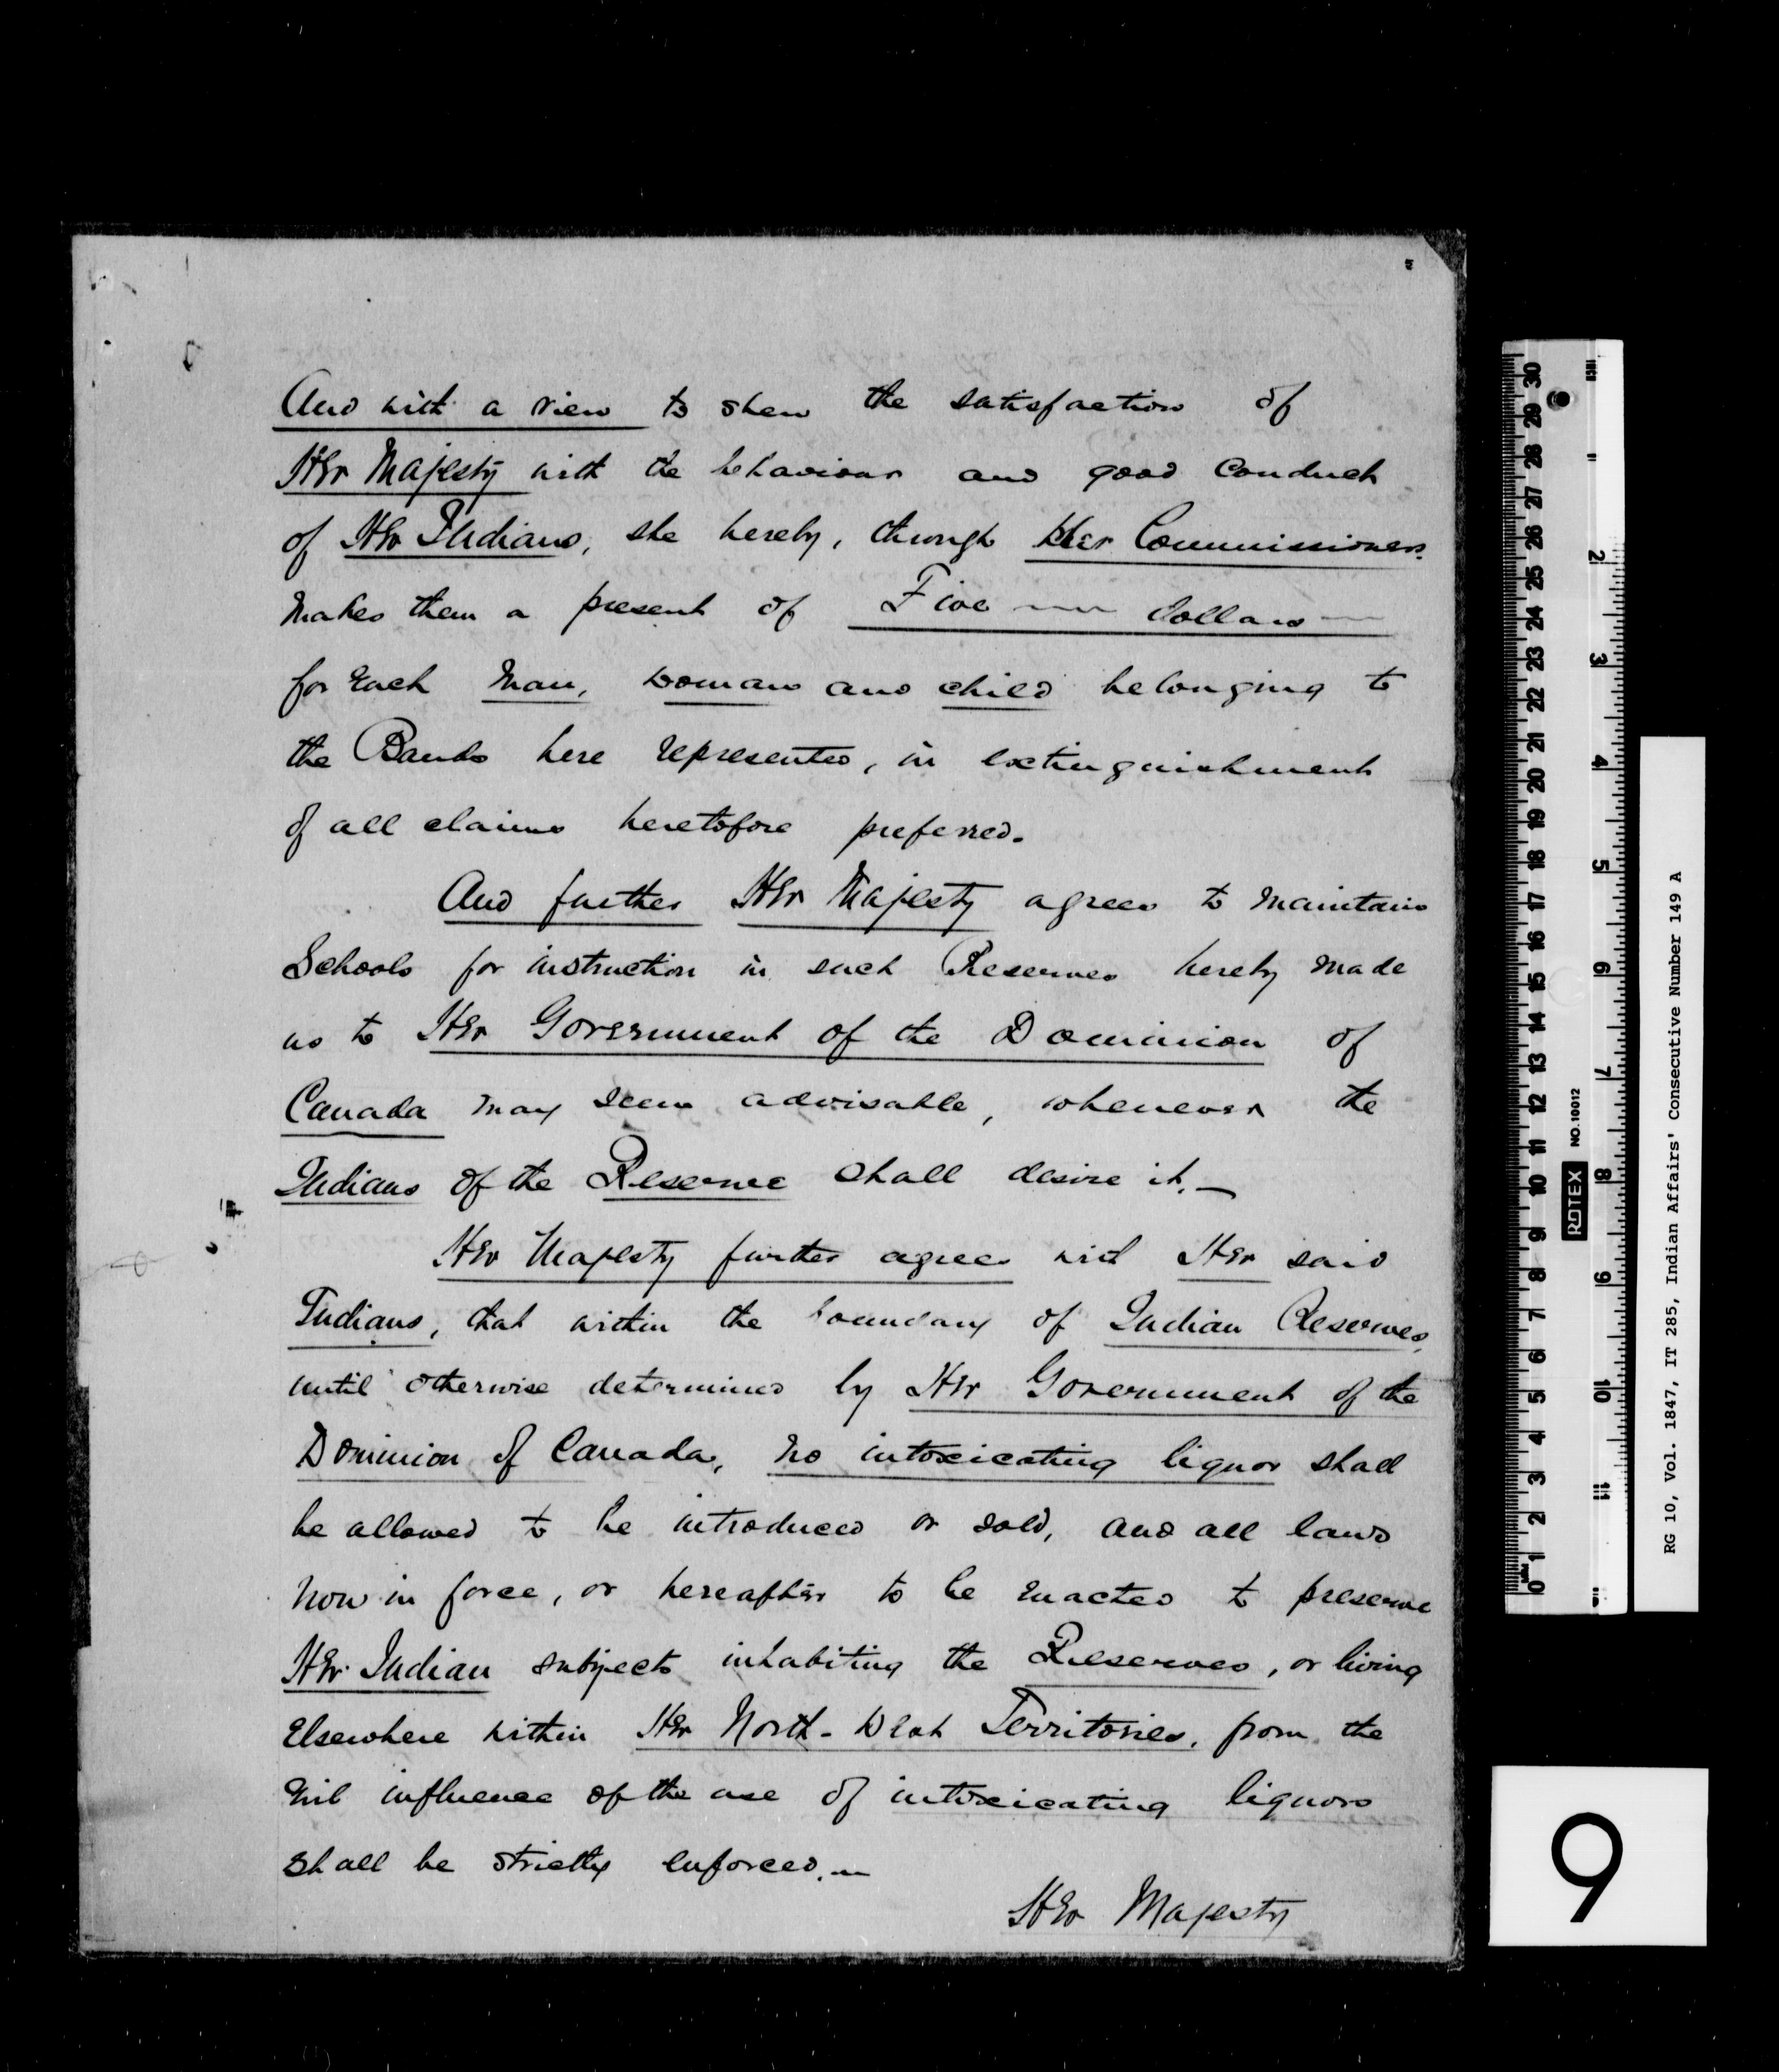 And with a view to shew the satisfaction of
Her Majesty with the behaviour and good conduct
of Her Indians, she hereby, through Her Commissioners.
makes them a present of Five dollars
for each man, woman and child belonging to
the Bands here represented, in extinguishment
of all claims heretofore preferred.
And further Her Majesty agrees to maintain
Schools for instruction in such Reserves hereby made
as to Her Government of the Dominion of
Canada may seem advisable, whenever the
Indians of the Reserve shall desire it. —
Her Majesty further agrees with Her said
Indians, that within the boundary of Indian Reserves,
until otherwise determined by Her Government of the
Dominion of Canada, no intoxicating liquor shall
be allowed to be introduced or sold, and all laws
now in force, or hereafter to be enacted to preserve
Her Indian subjects inhabiting the Reserves, or living
elsewhere within Her North-West Territories, from the
evil influence of the use of intoxicating liquors
shall be strictly enforced. —
Her Majesty
30 29 28 27 26 25 24 23 22 21 20 19 18 17 16 15 14 13 12 11 10 9 8 7 6 5 4 3 2 1 0
2 3 4 5 6 7 8 9 10 11
ROTEX NO. 10012
RG 10, Vol. 1847, IT 285, Indian Affairs' Consecutive Number 149 A
9